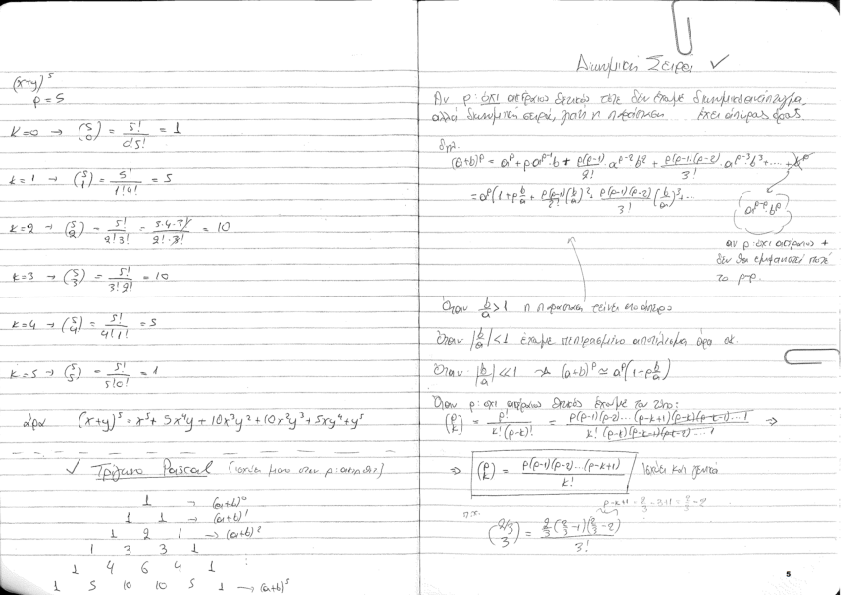 (x+y)⁵
p = 5
K=0 → (5 0) = 5!/0!5! = 1
K=1 → (5 1) = 5!/1!4! = 5
K=2 → (5 2) = 5!/2!3! = 3·4·5/2!·3! = 10
K=3 → (5 3) = 5!/3!2! = 10
K=4 → (5 4) = 5!/4!1! = 5
K=5 → (5 5) = 5!/5!0! = 1
άρα (x+y)⁵ = x⁵ + 5x⁴y + 10x³y² + 10x²y³ + 5xy⁴ + y⁵
✓ Τρίγωνο Pascal (ισχύει μόνο όταν p: ακέραιος)
1 → (a+b)⁰
1 1 → (a+b)¹
1 2 1 → (a+b)²
1 3 3 1
1 4 6 4 1
1 5 10 10 5 1 → (a+b)⁵
Διωνυμική Σειρά ✓
Αν p: όχι ακέραιος θετικός τότε δεν έχουμε διωνυμικό ανάπτυγμα,
αλλά διωνυμική σειρά, γιατί η παράσταση έχει άπειρους όρους
δηλ.
(a+b)ᵖ = aᵖ + p aᵖ⁻¹·b + p(p-1)/2! · aᵖ⁻² b² + p(p-1)(p-2)/3! · aᵖ⁻³ b³ + .... + bᵖ
= aᵖ(1 + p b/a + p(p-1)/2! (b/a)² + p(p-1)(p-2)/3! (b/a)³ + ...
aᵖ⁻ᵖ bᵖ
αν p: όχι ακέραιος +
δεν θα εμφανιστεί ποτέ
το p-p.
Όταν b/a > 1 η παράσταση τείνει στο άπειρο
Όταν |b/a| < 1 έχουμε πεπερασμένο αποτέλεσμα άρα οκ.
Όταν |b/a| << 1 → (a+b)ᵖ ≃ aᵖ(1-p b/a)
Όταν p: όχι ακέραιος θετικός έχουμε τον τύπο:
(p k) = p!/k!(p-k)! = p(p-1)(p-2)...(p-k+1)(p-k)(p-k-1)...1/k!(p-k)(p-k-1)(p-k-2)...1 ⇒
⇒ (p k) = p(p-1)(p-2)...(p-k+1)/k! Ισχύει και γενικά
p-k+1 = 2/3 - 3 + 1 = 2/3 - 2
π.χ.
(2/3 3) = 2/3(2/3-1)(2/3-2)/3!
5